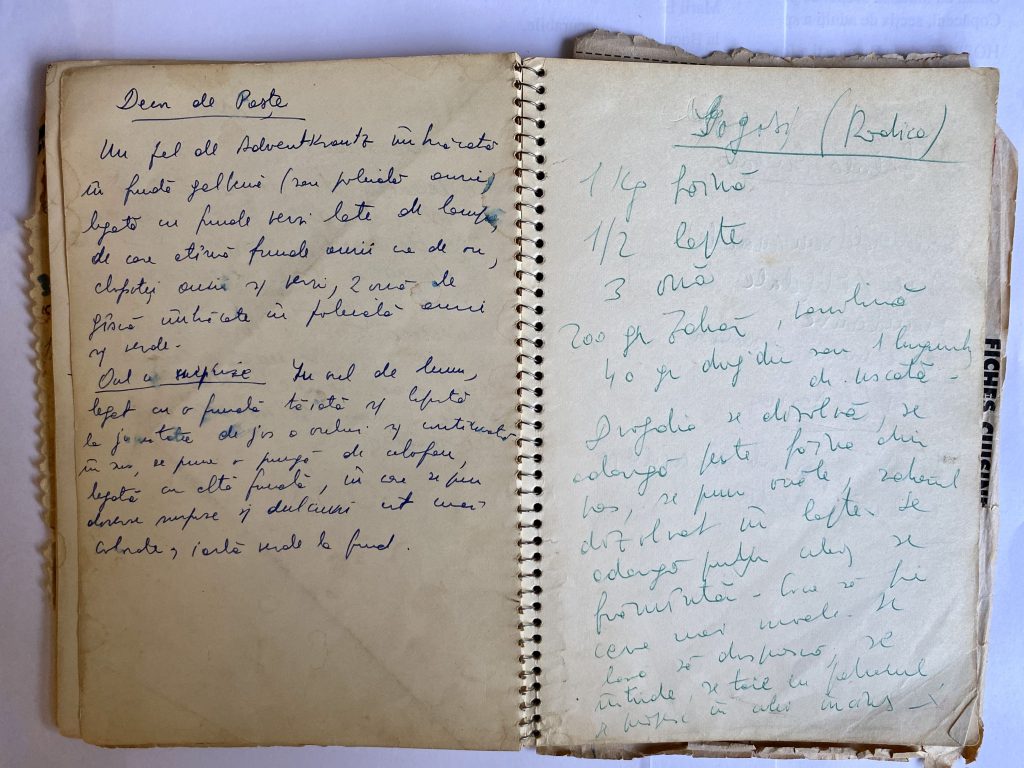 Decor de Paște
Un fel de Adventkrantz îmbrăcată
în fundă galbenă (sau poleială aurie)
legată cu funde verzi late de
de care atîrnă funde aurii ca de ou,
clopoței aurii și verzi, 2 ouă de
gîscă îmbrăcate în poleială aurie
și verde.
Ouă cu surprize În cel de lemn,
legat cu o fundă tăiată și lipită
la jumătate de jos a oului și continuată
în sus, se pune o pungă de celofan,
legată cu altă fundă, în care se pun
diverse surprize și dulciuri cît mai
colorate, iarbă verde la fund.
Gogoși (Rodica)
1 Kg făină
1/2 lapte
3 ouă
200 gr zahăr, vanilină
40 gr drojdie sau 1 linguriță
dr. uscată -
Drojdia se dizolvă, se
adaugă peste făina din
vas, se pun ouăle, zahărul
dizolvat în lapte. Se
adaugă puțin ulei, se
frămîntă - Coca să fie
ceva mai moale. Se
lasă să dospească, se
întinde, se taie cu paharul
se prăjesc în ulei încins -
FICHES CUISINE